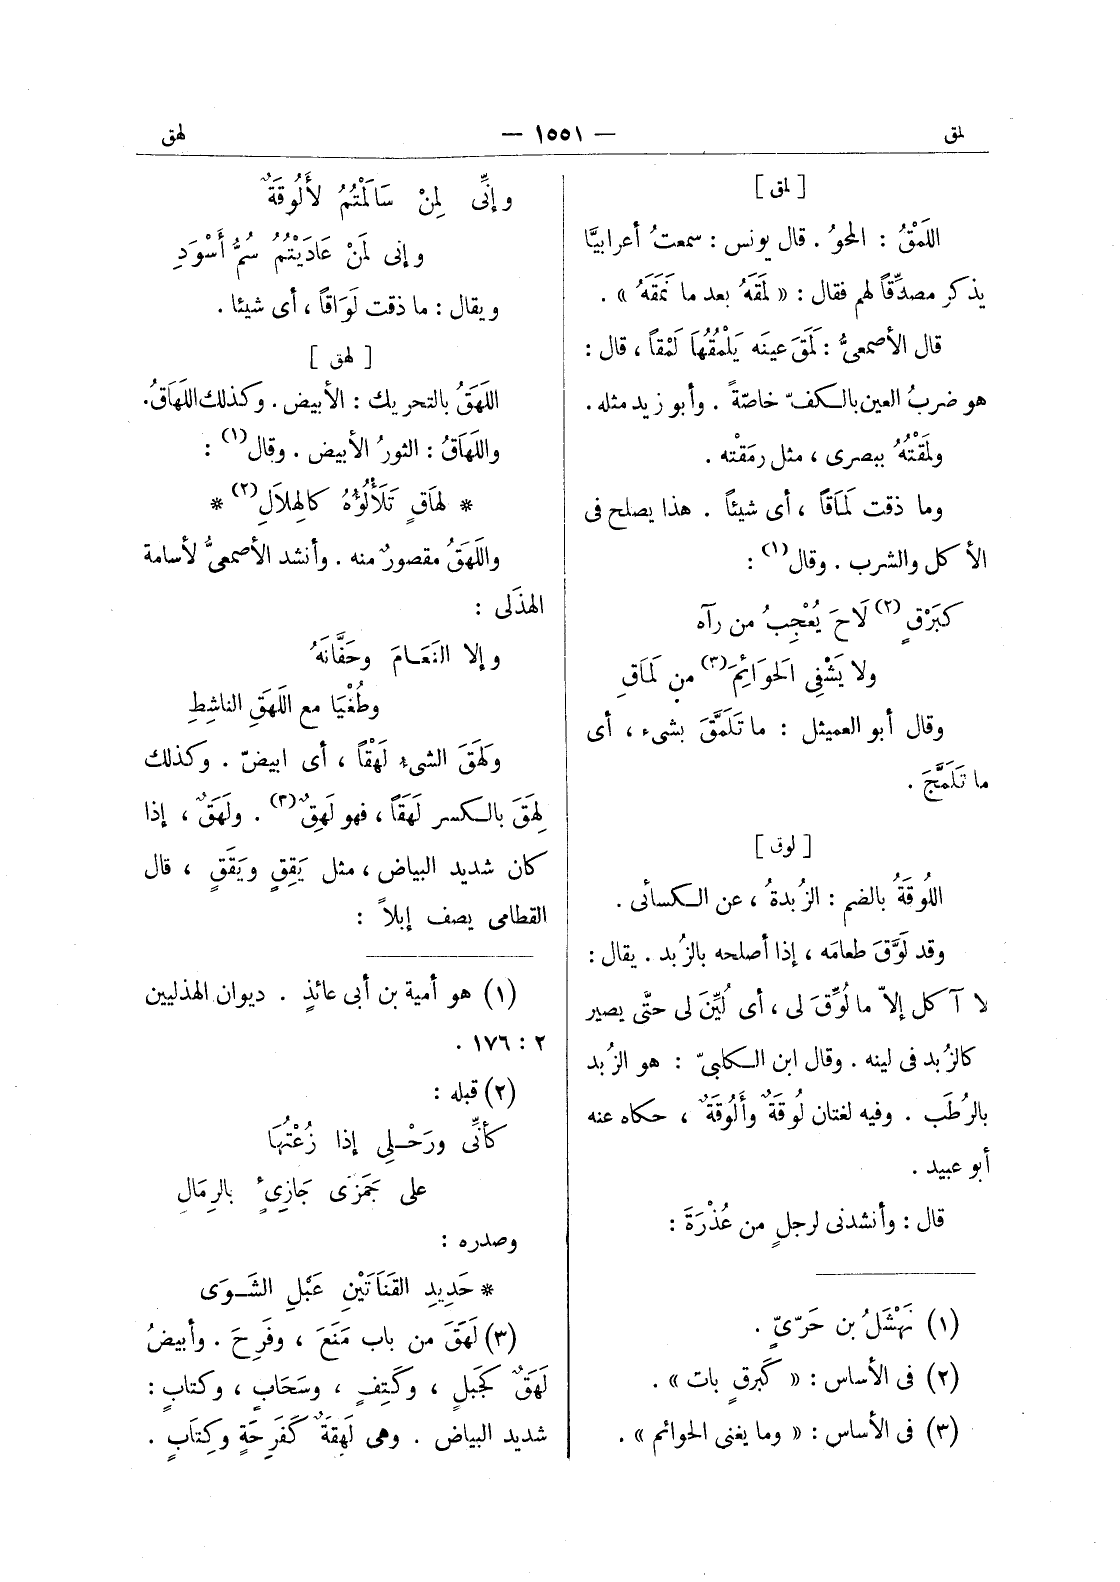 لمق
— ١٥٥١ —
لهق
[ لمق ]
اللَمْقُ : المحوُ . قال يونس : سمعتُ أعرابيًّا
يذكر مصدِّقاً لهم فقال : « لَمَقَهُ بعد ما نَمَقَهُ » .
قال الأصمعيُّ : لَمَقَ عينَه يَلْمُقُهَا لَمْقاً ، قال :
هو ضربُ العين بالكفّ خاصّةً . وأبو زيد مثله .
ولَمَقْتُهُ ببصرى ، مثل رمَقْته .
وما ذقت لَمَاقاً ، أى شيئاً . هذا يصلح فى
الأكل والشرب . وقال(١) :
كَبَرْقٍ(٢) لَاحَ يُعْجِبُ من رآه
ولا يَشْفِى الحَوَائِمَ(٣) من لَمَاقِ
وقال أبو العميثل : ما تَلَمَّقَ بشىء ، أى
ما تَلَمَّجَ .
[ لوق ]
اللُوقَةُ بالضم : الزُبدةُ ، عن الكسائى .
وقد لَوَّقَ طعامَه ، إذا أصلحه بالزُبد . يقال :
لا آكل إلاّ ما لُوِّقَ لى ، أى لُيِّنَ لى حتَّى يصير
كالزُبد فى لينه . وقال ابن الكلبىّ : هو الزُبد
بالرُطَب . وفيه لغتان لُوقَةٌ وأَلُوقَةٌ ، حكاه عنه
أبو عبيد .
قال : وأنشدنى لرجلٍ من عُذْرَةَ :
(١) نَهْشَلُ بن حَرّىٍّ .
(٢) فى الأساس : « كَبرقٍ بات » .
(٣) فى الأساس : « وما يغنى الحوائم » .
وإنِّى لِمنْ سَالَمْتُمُ لأَلُوقَةٌ
وإنى لمَنْ عَادَيْتُمُ سُمُّ أَسْوَدِ
ويقال : ما ذقت لَوَاقاً ، أى شيئا .
[ لهق ]
اللَهَقُ بالتحريك : الأبيض . وكذلك اللَهَاقُ .
واللَهَاقُ : الثورُ الأبيض . وقال(١) :
* لهَاقٍ تَلَأْلُؤُهُ كالهِلاَلِ(٢) *
واللَهَقُ مقصورٌ منه . وأنشد الأصمعىُّ لأسامة
الهذَلى :
وإلا النَعَامَ وحَفَّانَهُ
وطُغْيَا مع اللَهَقِ الناشِطِ
ولَهَقَ الشىء لَهْقاً ، أى ابيضّ . وكذلك
لِهَقَ بالكسر لَهَقاً ، فهو لَهِقٌ(٣) . ولَهَقٌ ، إذا
كان شديد البياض ، مثل يَقِقٍ ويَقَقٍ ، قال
القطامى يصف إبلاً :
(١) هو أمية بن أبى عائذٍ . ديوان الهذليين
٢ : ١٧٦ .
(٢) قبله :
كأنِّى ورَحْلِى إذا زُعْتُهَا
على جَمَزَى جَازِىءٍ بالرِمَالِ
وصدره :
* حَدِيدِ القَنَاتَيْنِ عَبْلِ الشَوَى
(٣) لَهَقَ من باب مَنَعَ ، وفَرِحَ . وأبيضُ
لَهَقٌ كجَبلٍ ، وكَتِفٍ ، وسَحَابٍ ، وكتابٍ :
شديد البياض . وهى لَهِقَةٌ كَفَرِحَةٍ وكِتَابٍ .